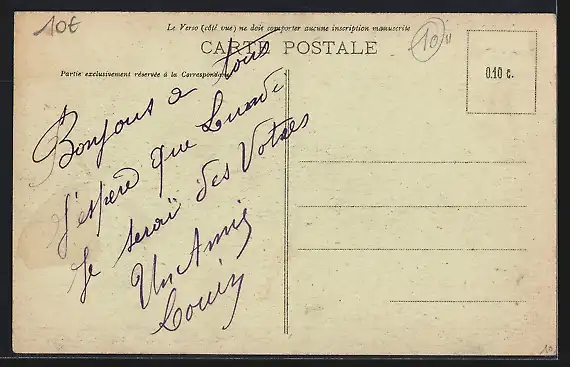 10€
Le Verso (côté vue) ne doit comporter aucune inscription manuscrite
CARTE POSTALE
10
0.10 c.
Partie exclusivement réservée à la Correspondance
Bonjour a tous
J'espere que Lundi
Je serai des Votres
Un Ami
Louis
10